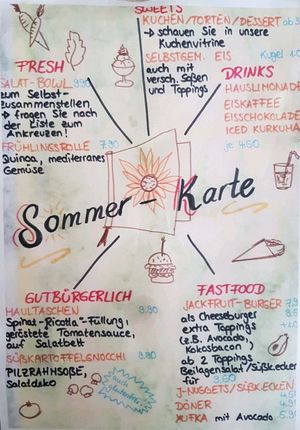 SWEETS
KUCHEN/TORTEN/DESSERT ab 3
→ schauen Sie in unsere
Kuchenvitrine
SELBSTGEM. EIS Kugel 1.0
auch mit versch. Soßen
und Toppings
FRESH
SALAT-BOWL 9.90
zum Selbst-
zusammenstellen
→ fragen Sie nach
der Liste zum
Ankreuzen!
FRÜHLINGSROLLE 7.90
Quinoa, mediterranes
Gemüse
DRINKS
HAUSLIMONADE
EISKAFFEE
EISSCHOKOLADE
ICED KURKUMA
je 4.50
Sommer-Karte
GUTBÜRGERLICH
MAULTASCHEN 9.90
Spinat-"Ricotta"-Füllung,
geröstete Tomatensauce,
auf Salatbett
SÜßKARTOFFELGNOCCHI 9.80
PILZRAHMSOßE,
Salatdeko
auch
glutenfrei
FASTFOOD
JACKFRUIT-BURGER 7.9
als Cheeseburger
extra Toppings
(z.B. Avocado,
Kokosbacon)
ab 2 Toppings
Beilagensalat/Süßk.ecken
für 3.60
J-NUGGETS/SÜßK.ECKEN
DÖNER
YUFKA mit Avocado